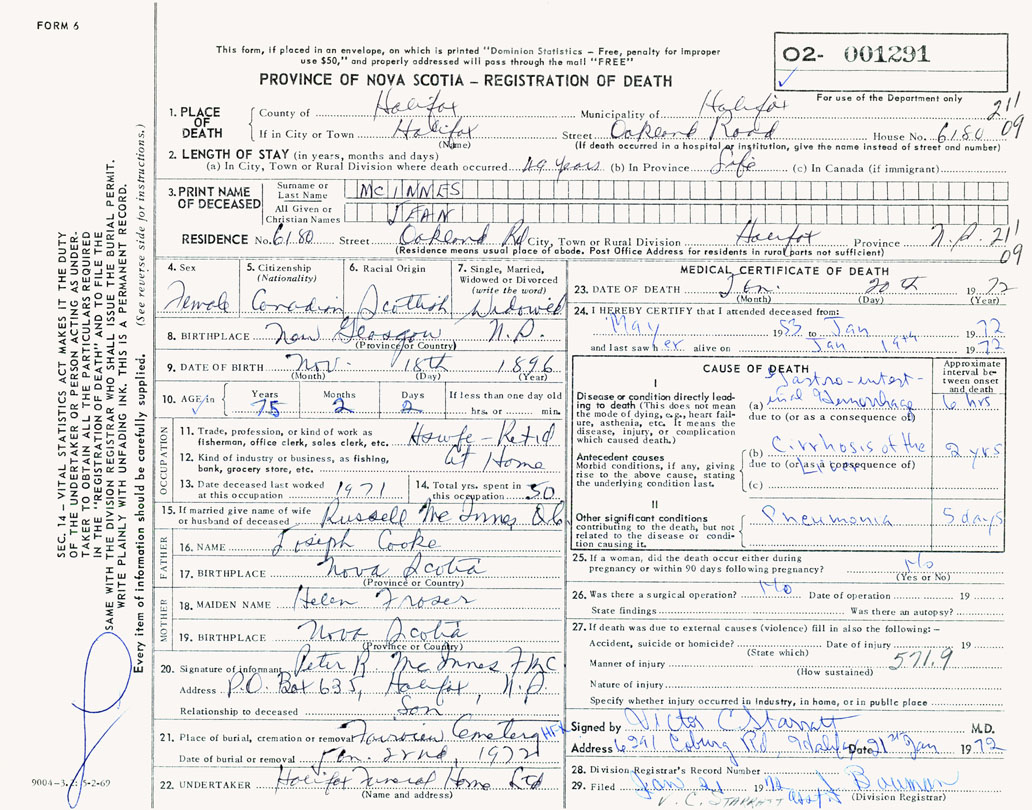 FORM 6
This form, if placed in an envelope, on which is printed "Dominion Statistics – Free, penalty for improper
use $50," and properly addressed will pass through the mail "FREE"
O2- 001291
PROVINCE OF NOVA SCOTIA – REGISTRATION OF DEATH
For use of the Department only
1. PLACE OF DEATH County of Halifax Municipality of Halifax 211
If in City or Town Halifax Street Oakland Road House No. 6180 09
(Name) (If death occurred in a hospital or institution, give the name instead of street and number)
2. LENGTH OF STAY (in years, months and days)
(a) In City, Town or Rural Division where death occurred 49 years (b) In Province Life (c) In Canada (if immigrant)
3. PRINT NAME OF DECEASED Surname or Last Name MCINNES
All Given or Christian Names JEAN
RESIDENCE No. 6180 Street Oakland Rd City, Town or Rural Division Halifax Province N.S. 211
(Residence means usual place of abode. Post Office Address for residents in rural parts not sufficient) 09
4. Sex 5. Citizenship (Nationality) 6. Racial Origin 7. Single, Married, Widowed or Divorced (write the word)
Female Canadian Scottish Widowed
8. BIRTHPLACE New Glasgow N.S.
(Province or Country)
9. DATE OF BIRTH Nov. 18th 1896
(Month) (Day) (Year)
10. AGE in Years Months Days If less than one day old
75 2 2 hrs. or min.
OCCUPATION
11. Trade, profession, or kind of work as fisherman, office clerk, sales clerk, etc. Hswfe - Ret'd
12. Kind of industry or business, as fishing, bank, grocery store, etc. At Home
13. Date deceased last worked at this occupation 1971 14. Total yrs. spent in this occupation 50
15. If married give name of wife or husband of deceased Russell McInnes Q.C.
FATHER
16. NAME Joseph Cooke
17. BIRTHPLACE Nova Scotia
(Province or Country)
MOTHER
18. MAIDEN NAME Helen Fraser
19. BIRTHPLACE Nova Scotia
(Province or Country)
20. Signature of informant Peter R McInnes
Address P.O. Box 635, Halifax, N.S.
Relationship to deceased Son
21. Place of burial, cremation or removal Fairview Cemetery
Date of burial or removal Jan. 22nd, 1972
22. UNDERTAKER Halifax Funeral Home Ltd
(Name and address)
MEDICAL CERTIFICATE OF DEATH
23. DATE OF DEATH Jan. 20th 1972
(Month) (Day) (Year)
24. I HEREBY CERTIFY that I attended deceased from:
May 1953 to Jan 1972
and last saw her alive on Jan 19th 1972
CAUSE OF DEATH Approximate interval between onset and death
I
Disease or condition directly leading to death (This does not mean the mode of dying, e.g., heart failure, asthenia, etc. It means the disease, injury, or complication which caused death.)
(a) Gastro-intestinal Hemorrhage 6 hrs
due to (or as a consequence of)
Antecedent causes
Morbid conditions, if any, giving rise to the above cause, stating the underlying condition last.
(b) Cirrhosis of the 2 yrs
due to (or as a consequence of)
(c)
II
Other significant conditions contributing to the death, but not related to the disease or condition causing it.
Pneumonia 5 days
25. If a woman, did the death occur either during pregnancy or within 90 days following pregnancy? No
(Yes or No)
26. Was there a surgical operation? No Date of operation 19
State findings Was there an autopsy?
27. If death was due to external causes (violence) fill in also the following: –
Accident, suicide or homicide? Date of injury 19
(State which) 571.9
Manner of injury
(How sustained)
Nature of injury
Specify whether injury occurred in industry, in home, or in public place
Signed by Victor C Starratt M.D.
Address 6391 Coburg Rd Halifax Date 21st Jan 1972
28. Division Registrar's Record Number
29. Filed Jan 21 1972 J Bauman
V. C. STARRATT (Division Registrar)
SEC. 14 – VITAL STATISTICS ACT MAKES IT THE DUTY
OF THE UNDERTAKER OR PERSON ACTING AS UNDER-
TAKER TO OBTAIN ALL THE PARTICULARS REQUIRED
IN THE "REGISTRATION OF DEATH" AND TO FILE THE
SAME WITH THE DIVISION REGISTRAR WHO SHALL ISSUE THE BURIAL PERMIT.
WRITE PLAINLY WITH UNFADING INK. THIS IS A PERMANENT RECORD.
Every item of information should be carefully supplied. (See reverse side for instructions.)